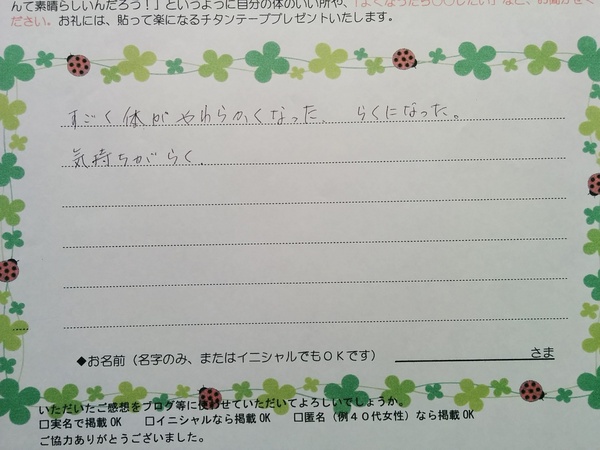 んて素晴らしいんだろう！」というように自分の体のいい所や、「よくなったら〇〇したい」など、お聞かせく
ださい。お礼には、貼って楽になるチタンテーププレゼントいたします。
すごく体がやわらかくなった、らくになった。
気持ちがらく、
◆お名前（名字のみ、またはイニシャルでもＯＫです）　さま
いただいたご感想をブログ等に使わせていただいてよろしいでしょうか。
□実名で掲載OK　□イニシャルなら掲載OK　□匿名（例４０代女性）なら掲載OK
ご協力ありがとうございました。